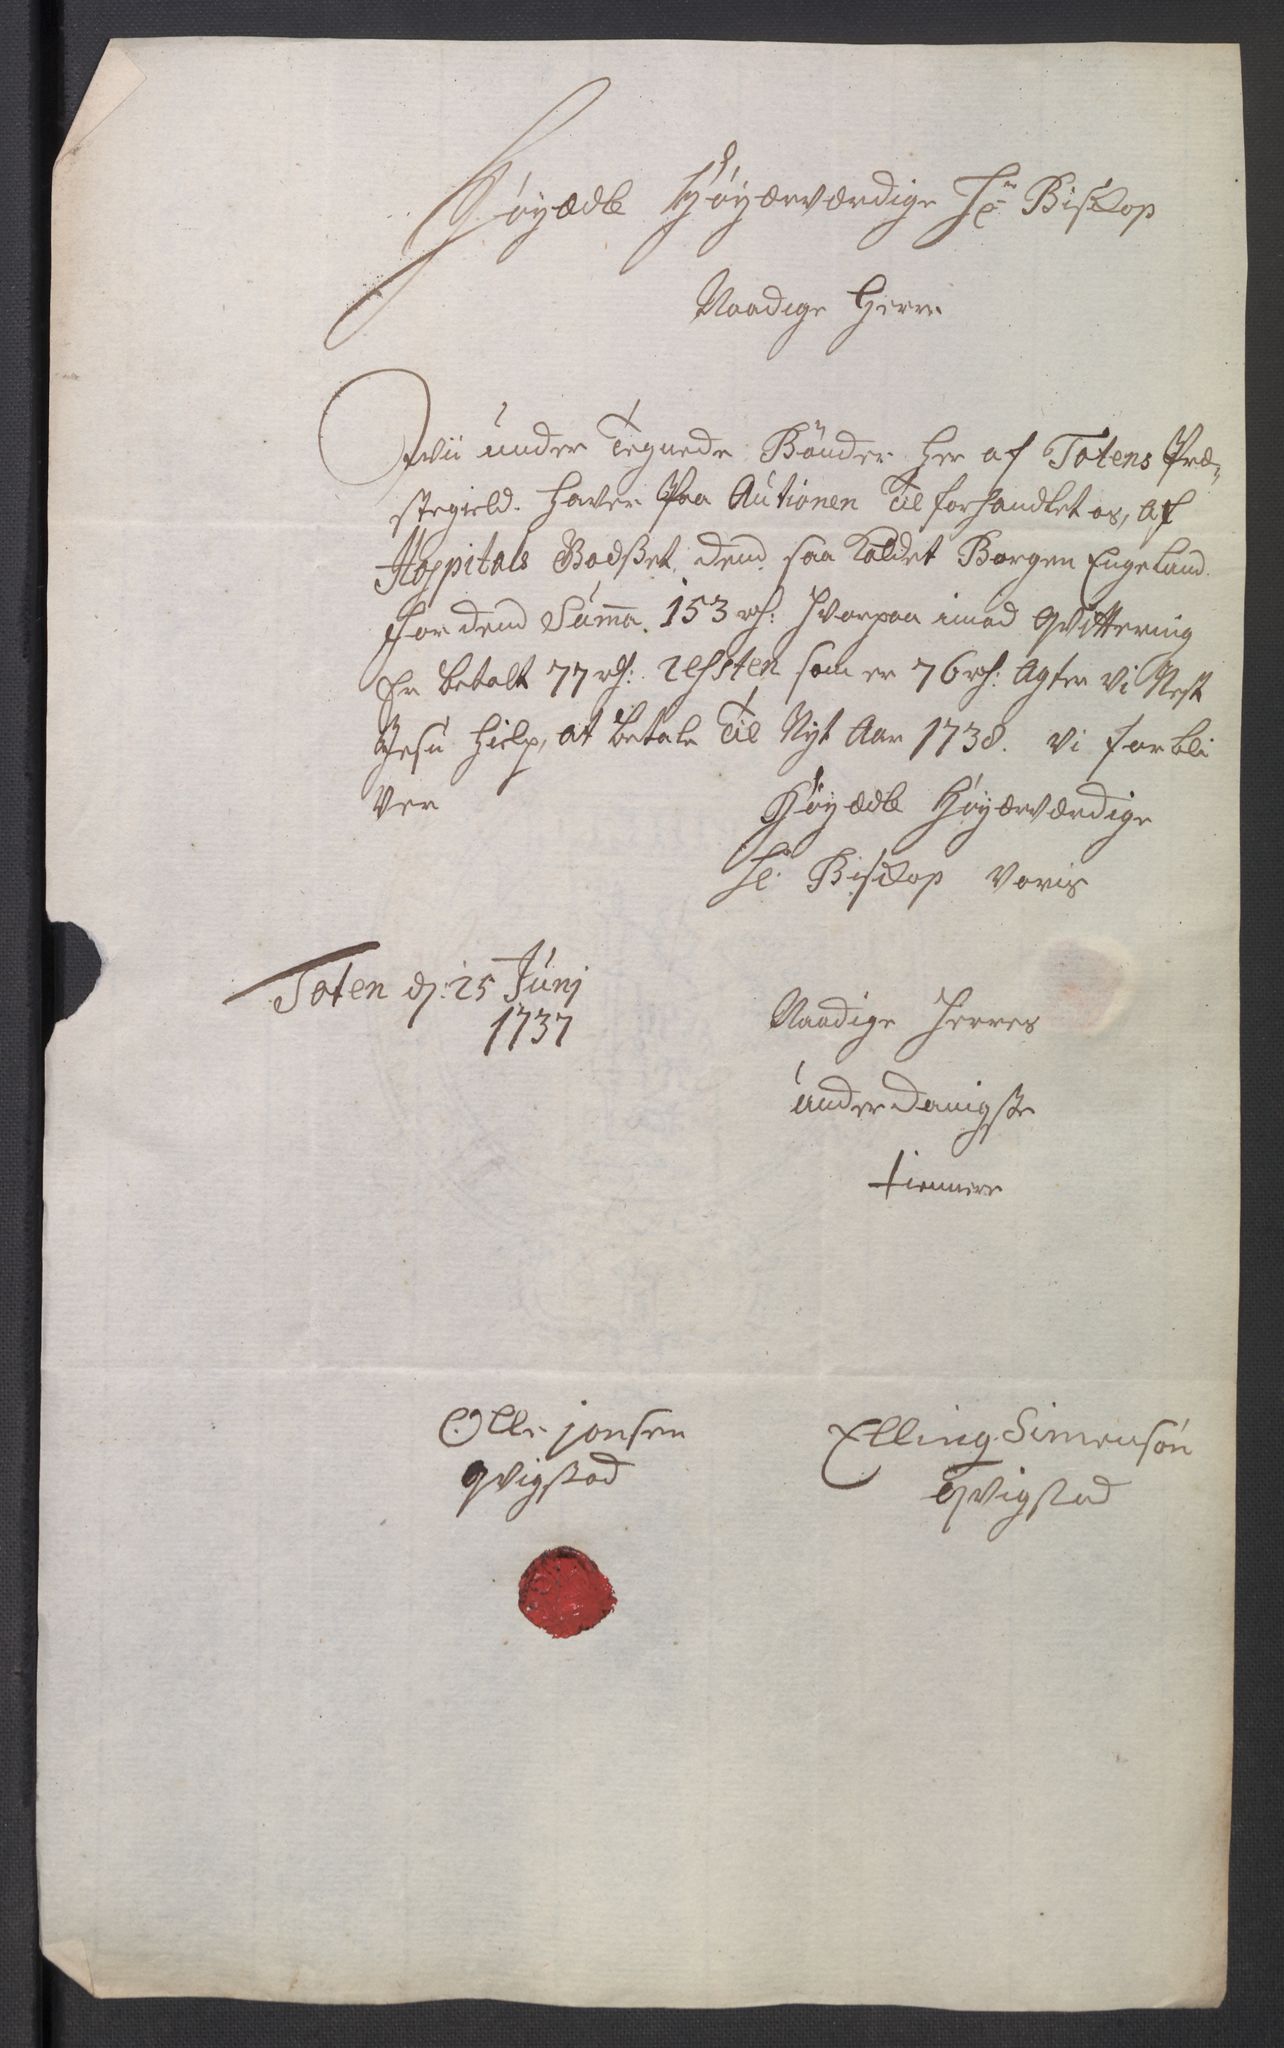 Høyædle Høyærværdige Hr Biskop
Naadige Herre
Wii under Tegnede Bönder her af Totens Præ-
stegield. haver Paa Autionen Til forhandlet os, af
Hospitals Godset, dend saa Kaldet Borgen Engeland
for dend Summa. 153 rd: hvorpaa imod Qvittering
Er betalt 77 rd: resten som er 76 rd: Agter vi Nest
Jesu hielp, at betale Til Nyt Aar 1738. vi forbli
ver
Høyædle Høyærværdige
Hr. Biskop Voris
Toten d: 25 Junj
1737
Naadige Herres
underdanigste
tiennere
Olle jonsen
qvigstad
Elling Simensön
Qvigstad